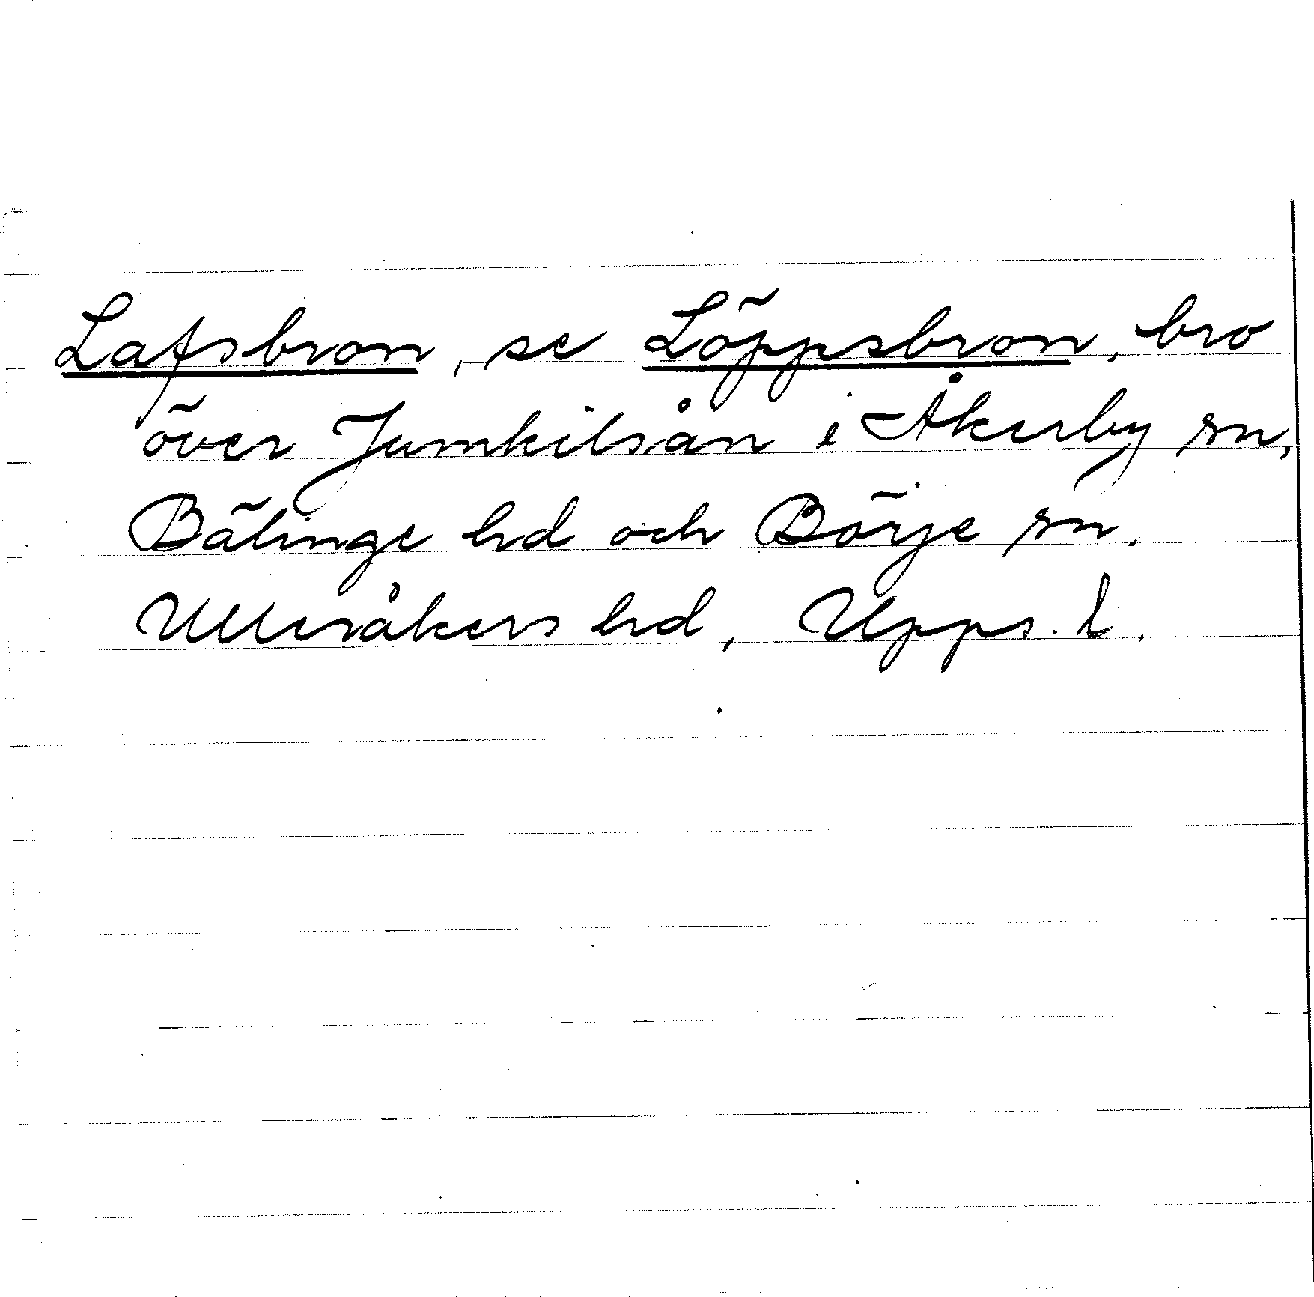 Lafsbron, se Löppsbron, bro
över Jumkilsån i Åkerby sn,
Bälinge hd och Börje sn,
Ulleråkers hd, Upps. l.